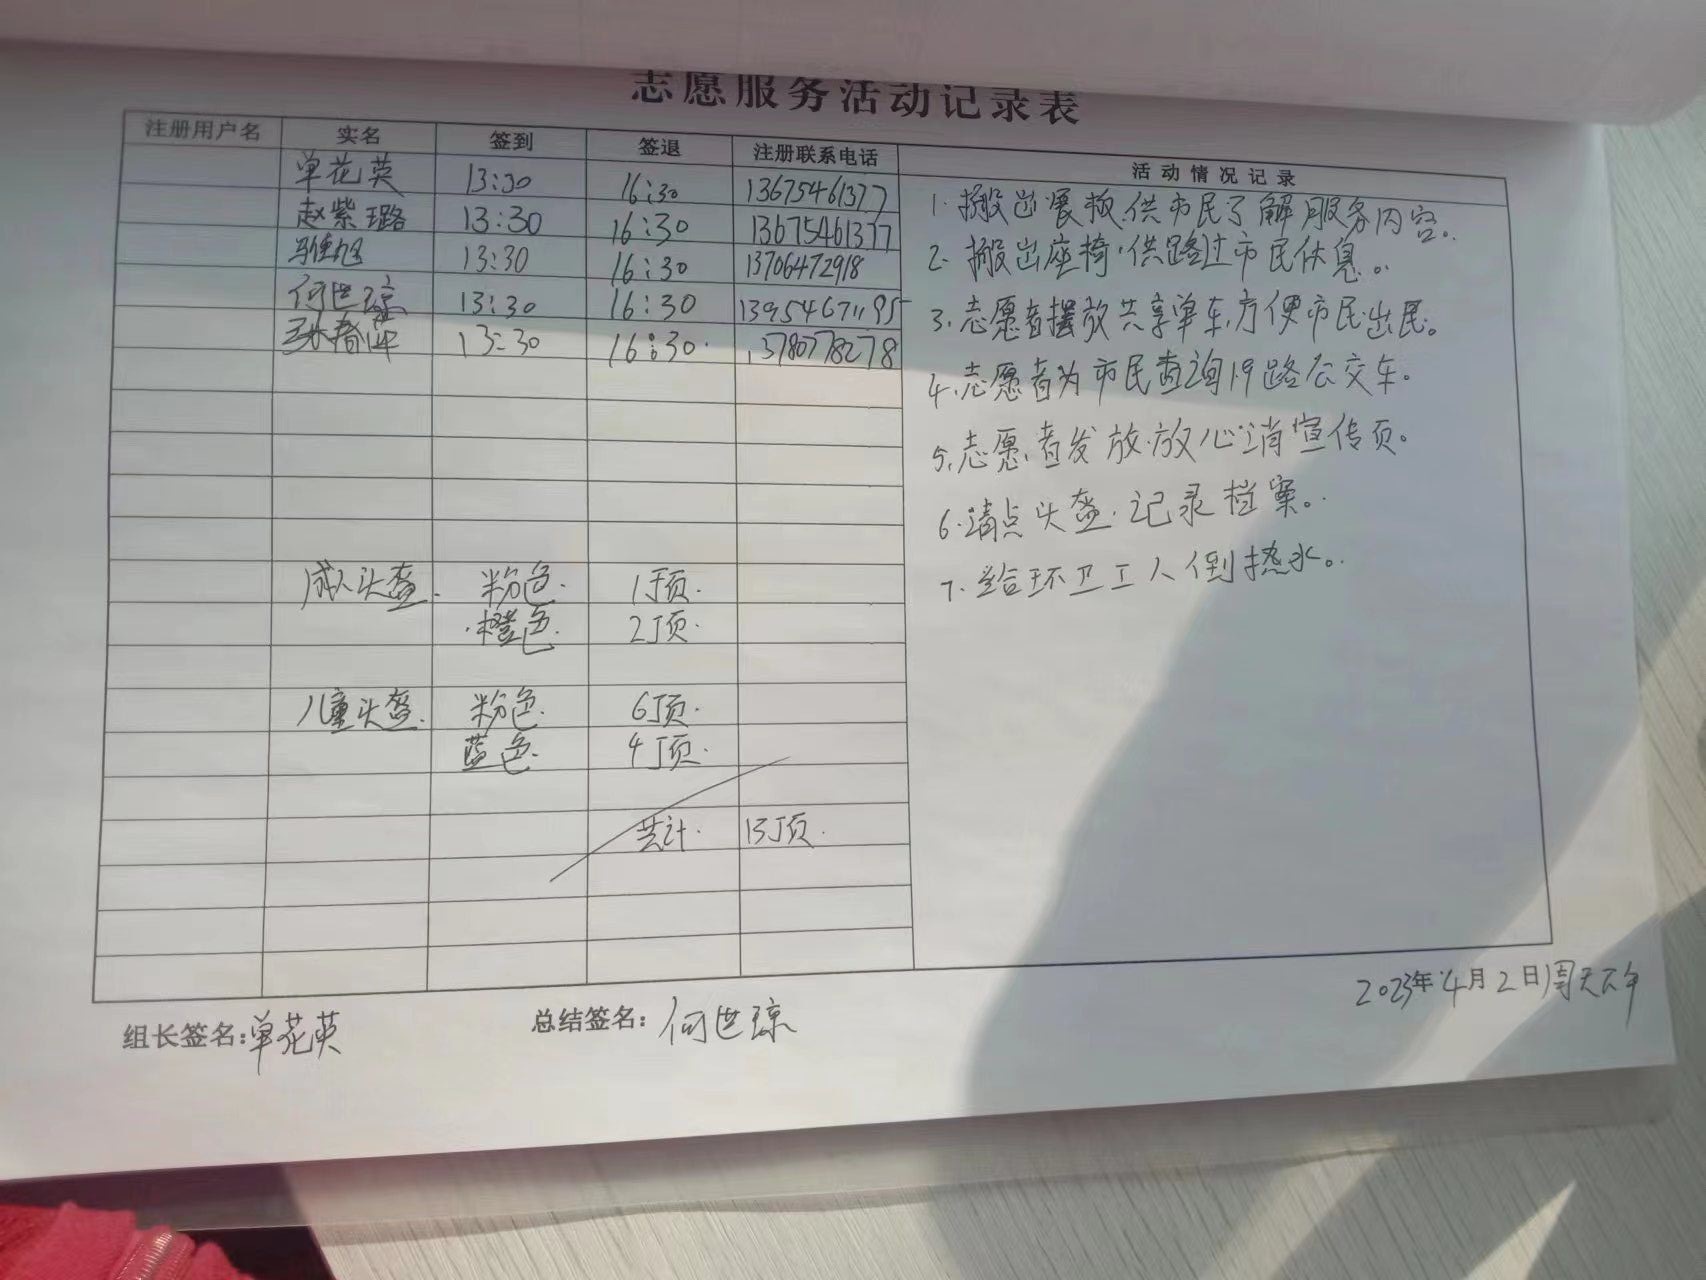 志愿服务活动记录表
注册用户名 实名 签到 签退 注册联系电话 活动情况记录
单花英 13:30 16:30 13675461377
赵紫璐 13:30 16:30 13675461377
13:30 16:30 13706472918
何世琼 13:30 16:30 13954671195
13:30 16:30 13780778278
成人头盔. 粉色. 1顶.
橙色. 2顶.
儿童头盔. 粉色. 6顶.
蓝色. 4顶.
共计. 13顶.
1. 搬出展板,供市民了解服务内容。
2. 搬出座椅,供路过市民休息。
3. 志愿者摆放共享单车,方便市民出民。
4. 志愿者为市民查询19路公交车。
5. 志愿者发放放心消宣传页。
6. 清点头盔.记录档案。
7. 给环卫工人倒热水。
2023年4月2日周天下午
组长签名:单花英 总结签名:何世琼